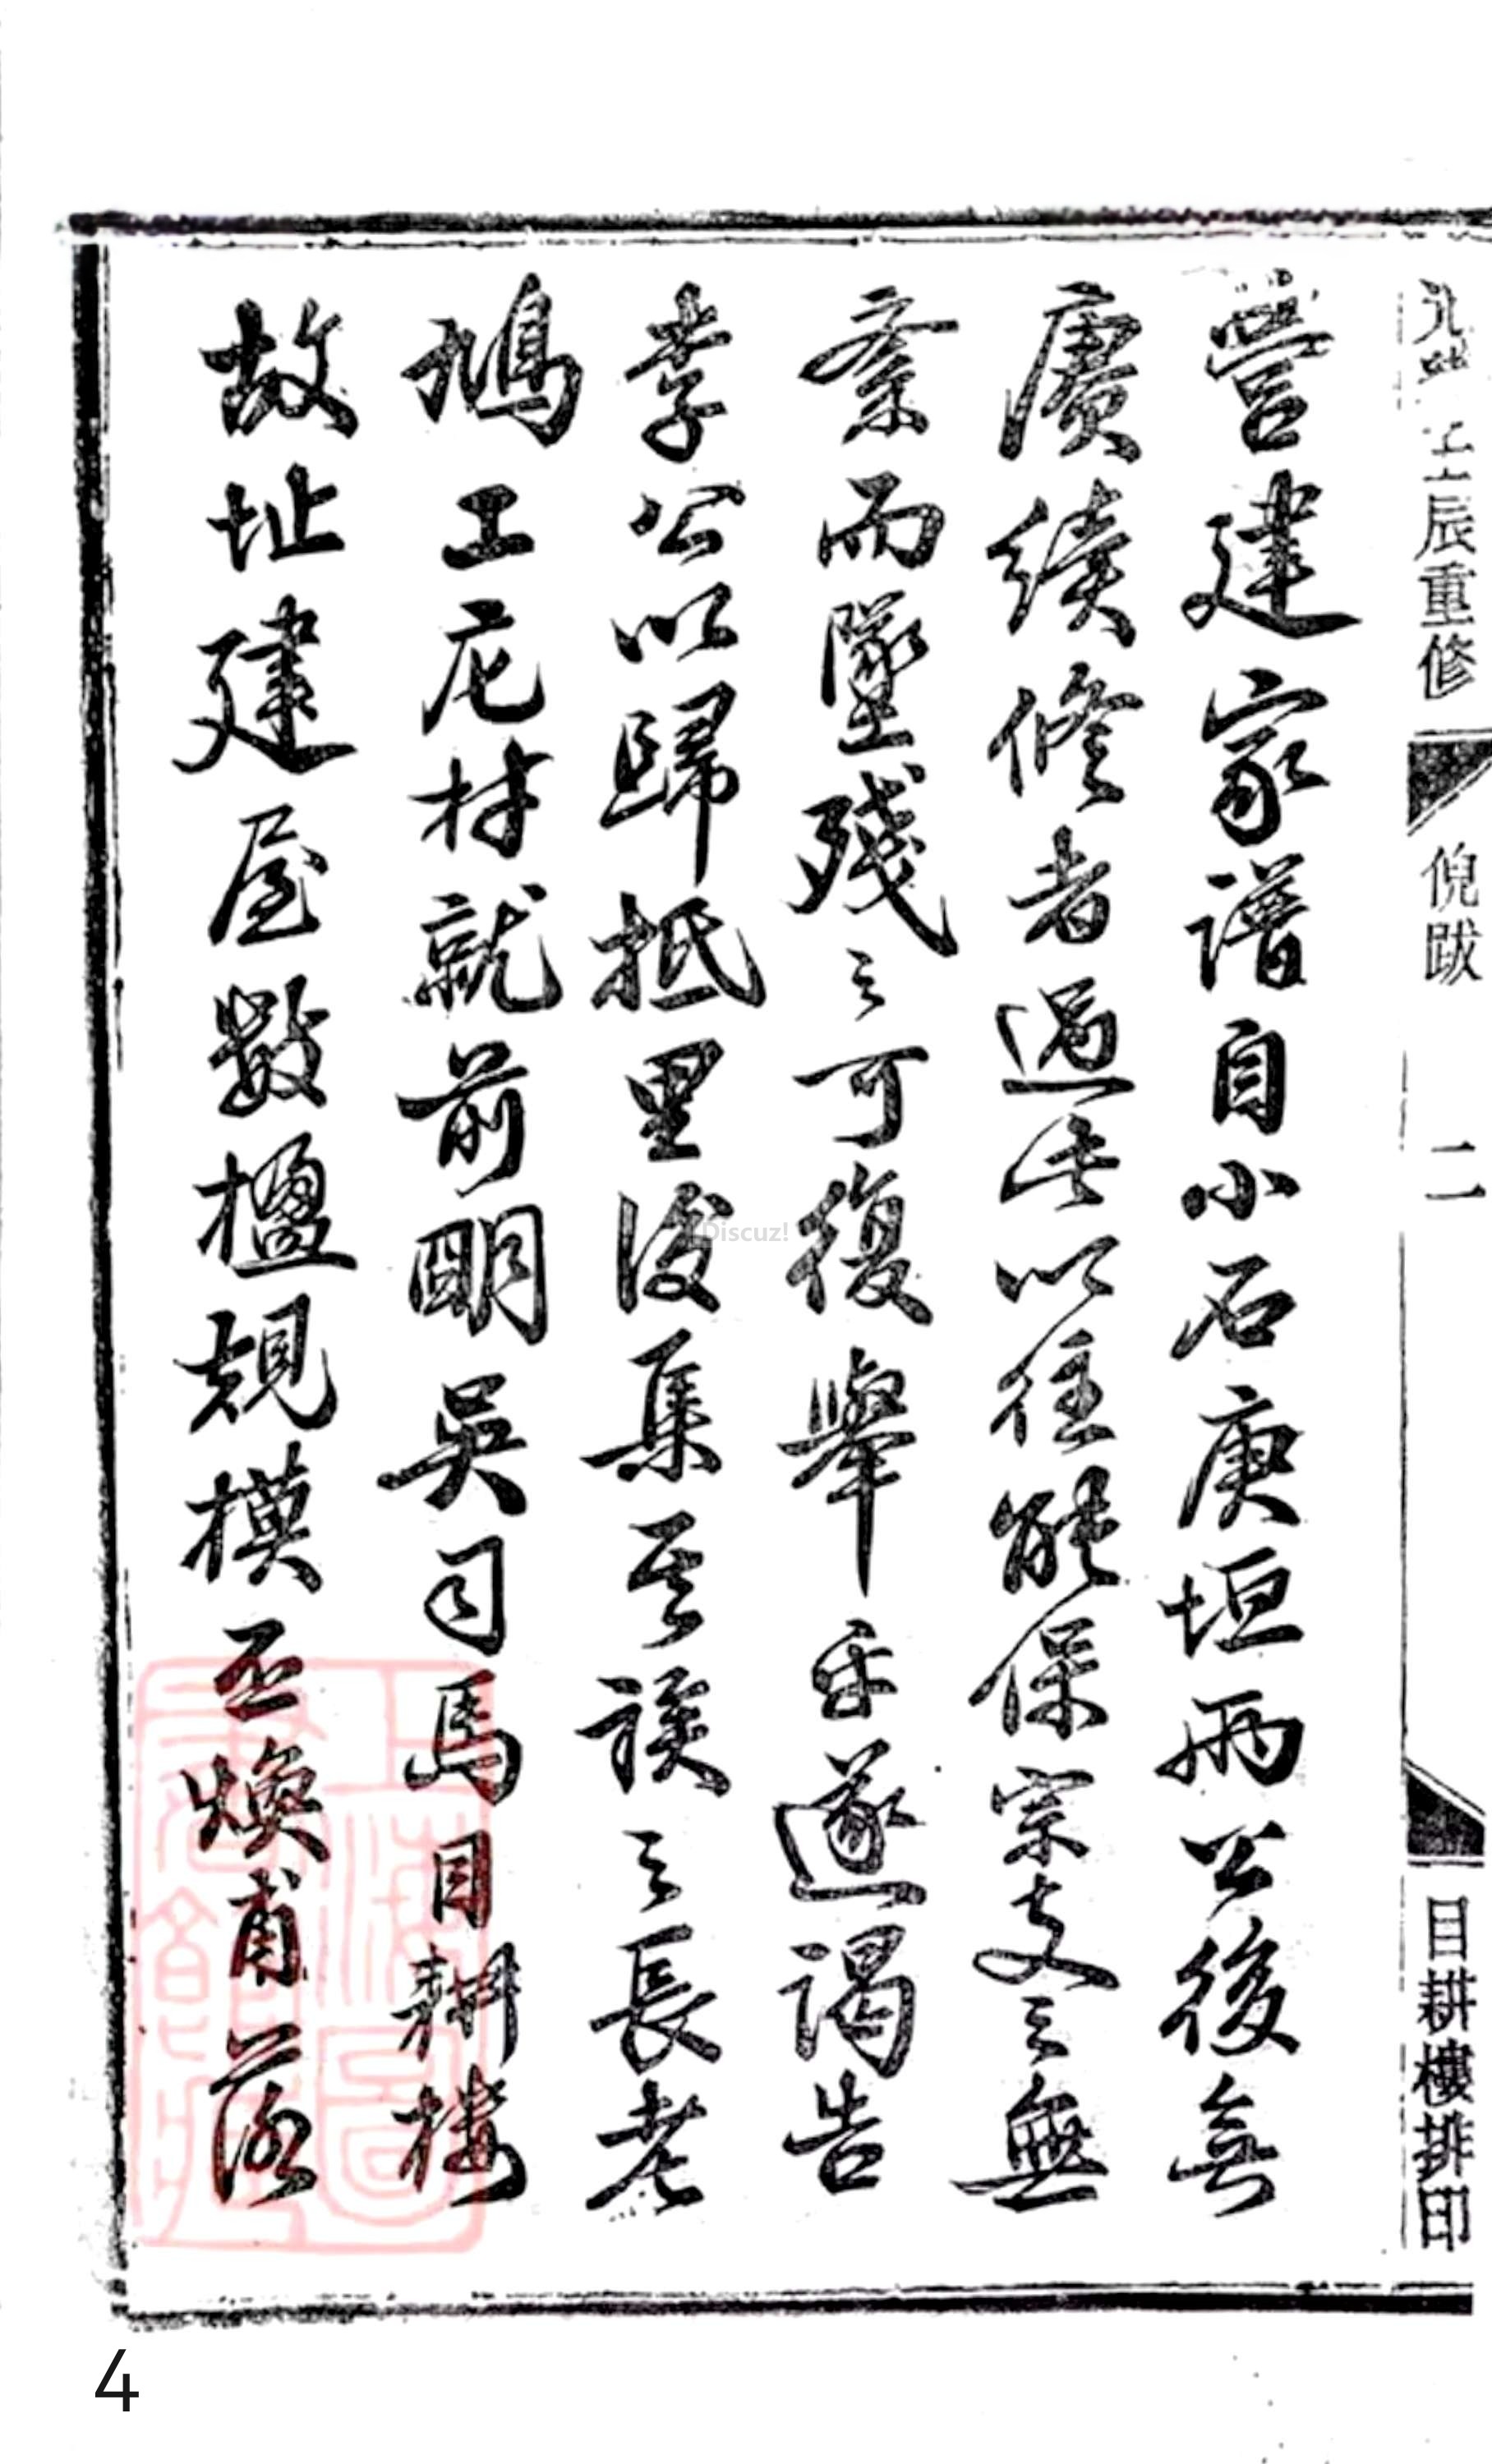 壬辰重修
倪跋
二
目耕樓排印
營建家譜自小石庚垣兩公後無
賡續修者過此以往能保宗支之無
紊而墜殘之可復舉乎遂謁告
李公以歸抵里後集其族之長老
鳩工庀材就前明吳司馬目耕樓
故址建屋數楹規模丕煥甫落
上海圖書館藏
Discuz!
4